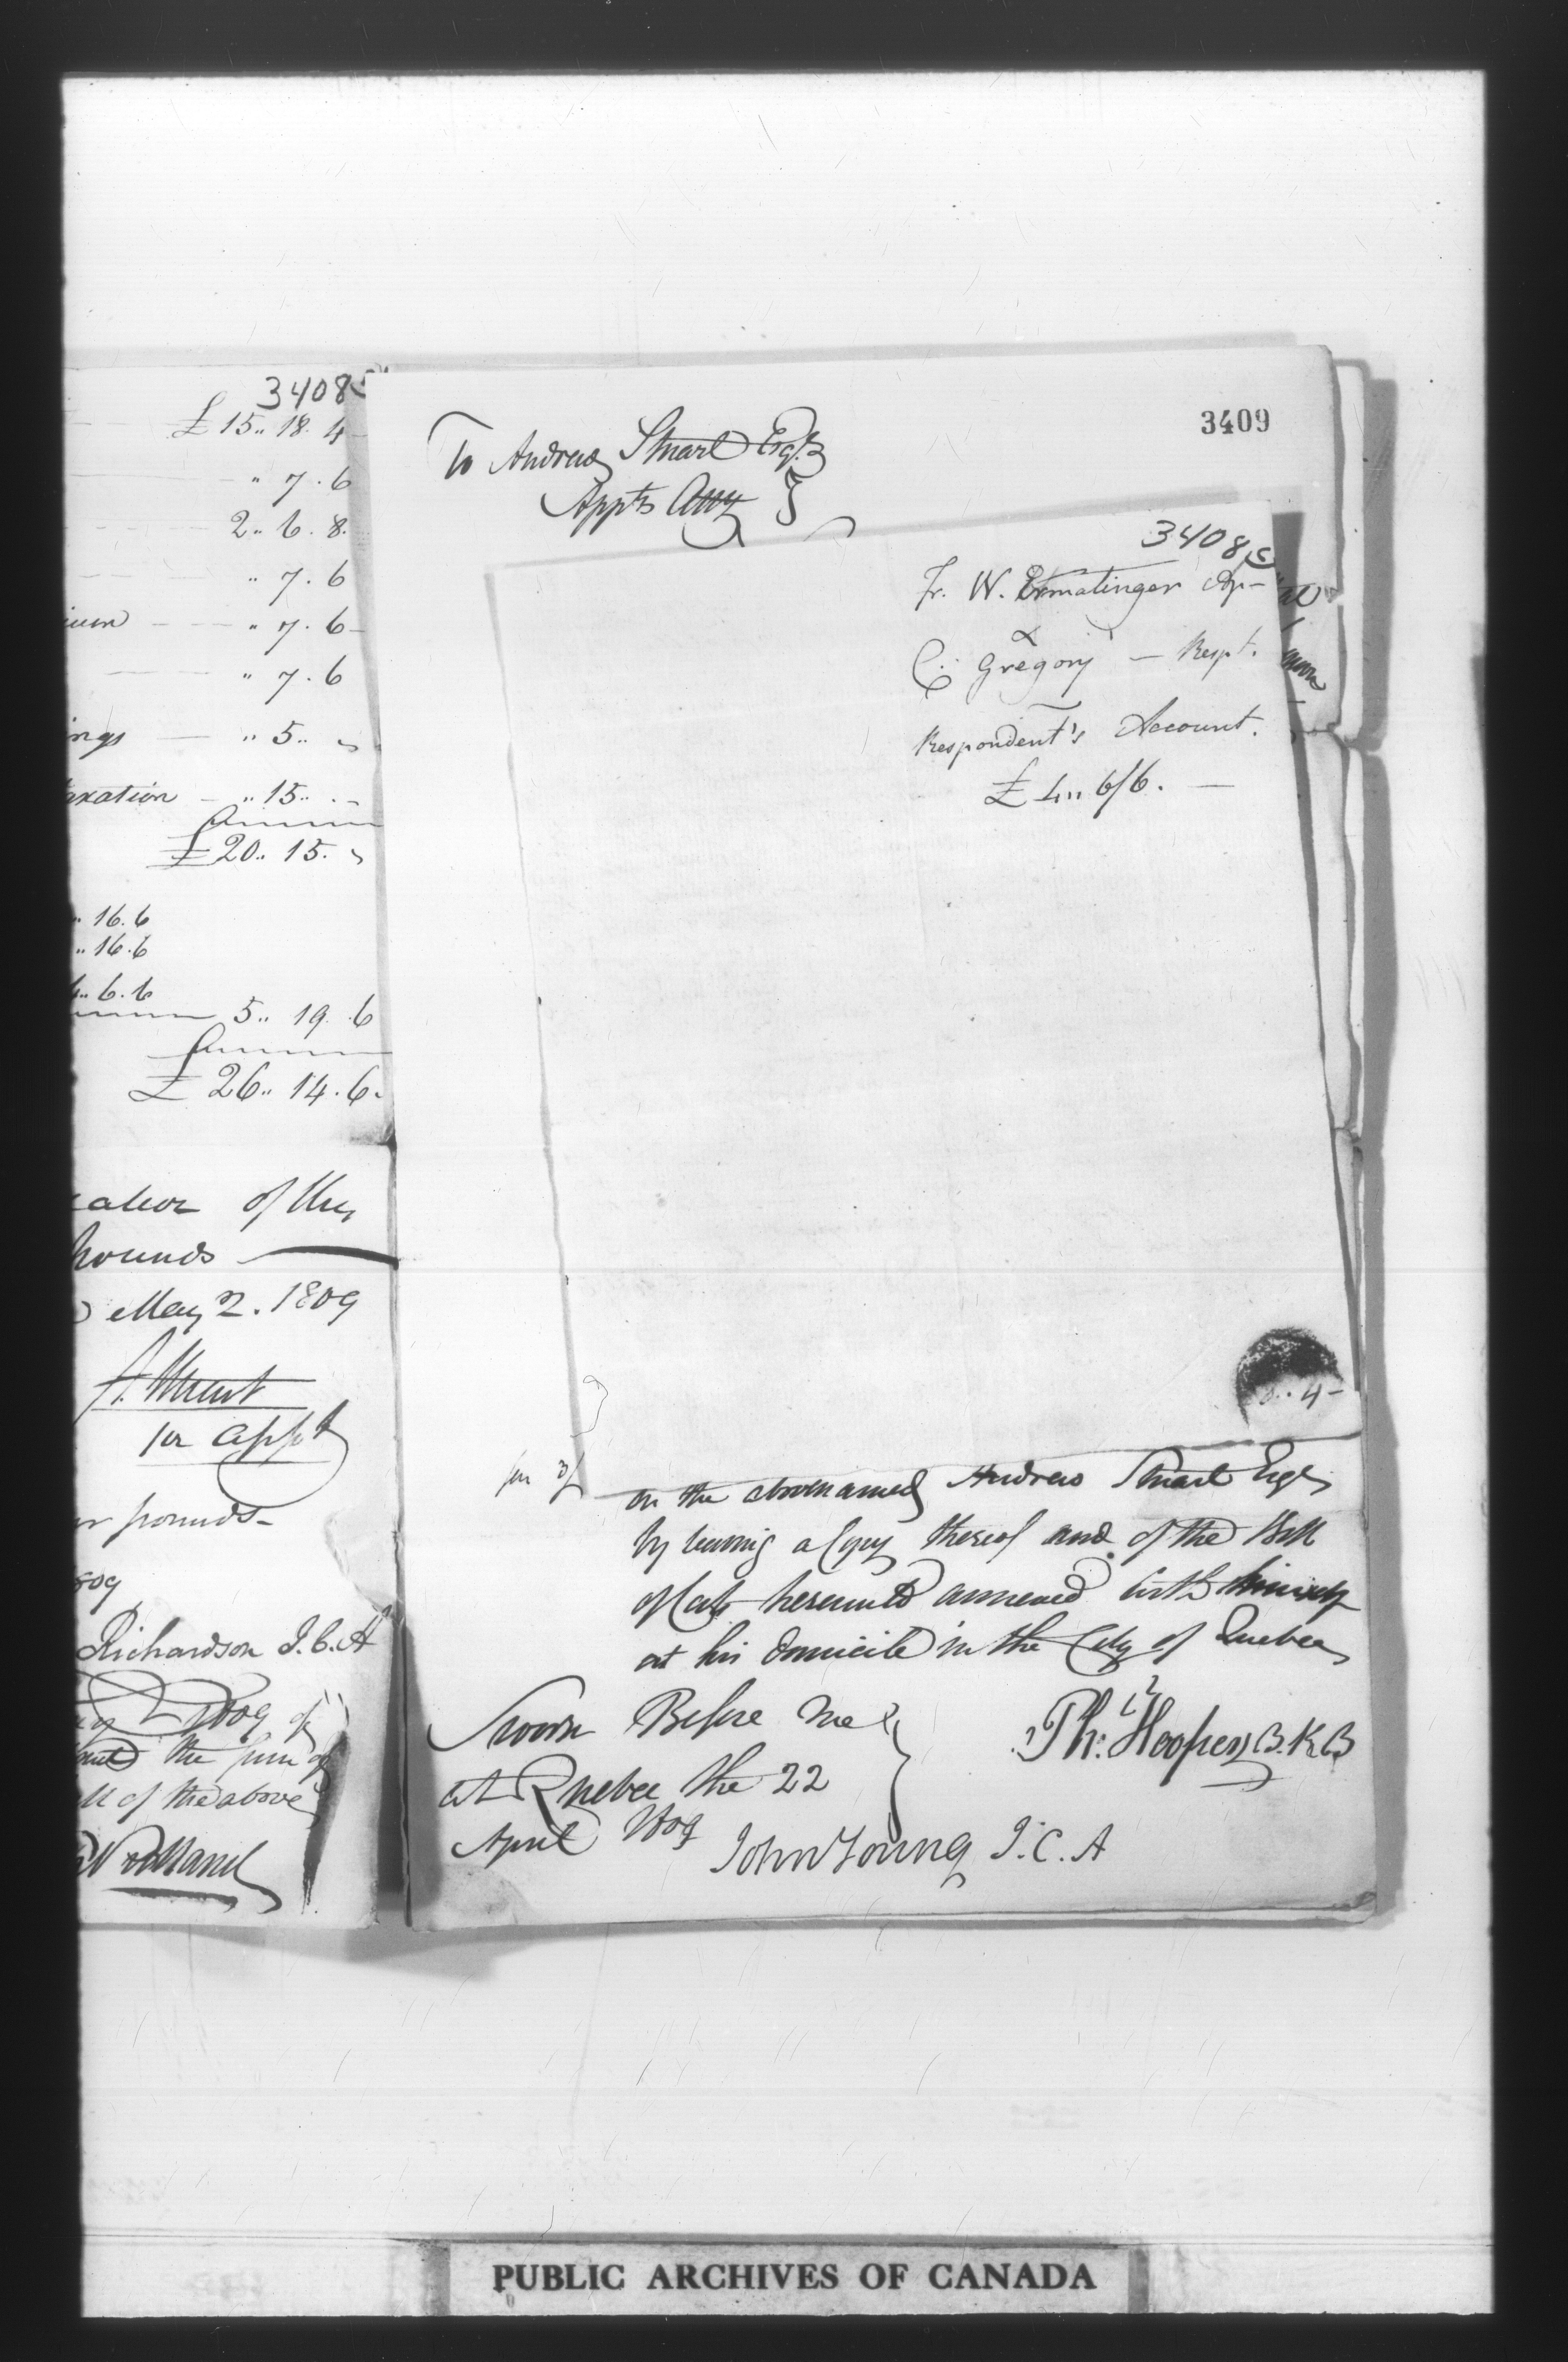 3408
£ 15.. 18. 4
" 7. 6
2.. 6. 8.
" 7. 6
" 7. 6
" 7. 6
ings — " 5..
axation — .. 15..
£ 20.. 15.
.. 16. 6
.. 16. 6
4.. 6. 6
5.. 19. 6
£ 26.. 14. 6.
of the
pounds
May 2. 1809
A. Stuart
for appt
pounds
809
Richardson J.C.A
1809 of
the sum of
of the above
3409
To Andrew Stuart Esqr
Appts Atty
3408
Fr. W. Ermatinger Ap-
&
C. Gregory — Respt.
Respondent's Account.
£ 4.. 6/6. —
4 -
on the abovenamed Andrew Stuart Esqr
by leaving a Copy thereof and of the Bill
of Costs hereunto annexed with himself
at his domicile in the City of Quebec
Sworn Before me
at Quebec the 22
April 1809
Ph: Hooper B.K.B
John Young J.C.A
PUBLIC ARCHIVES OF CANADA